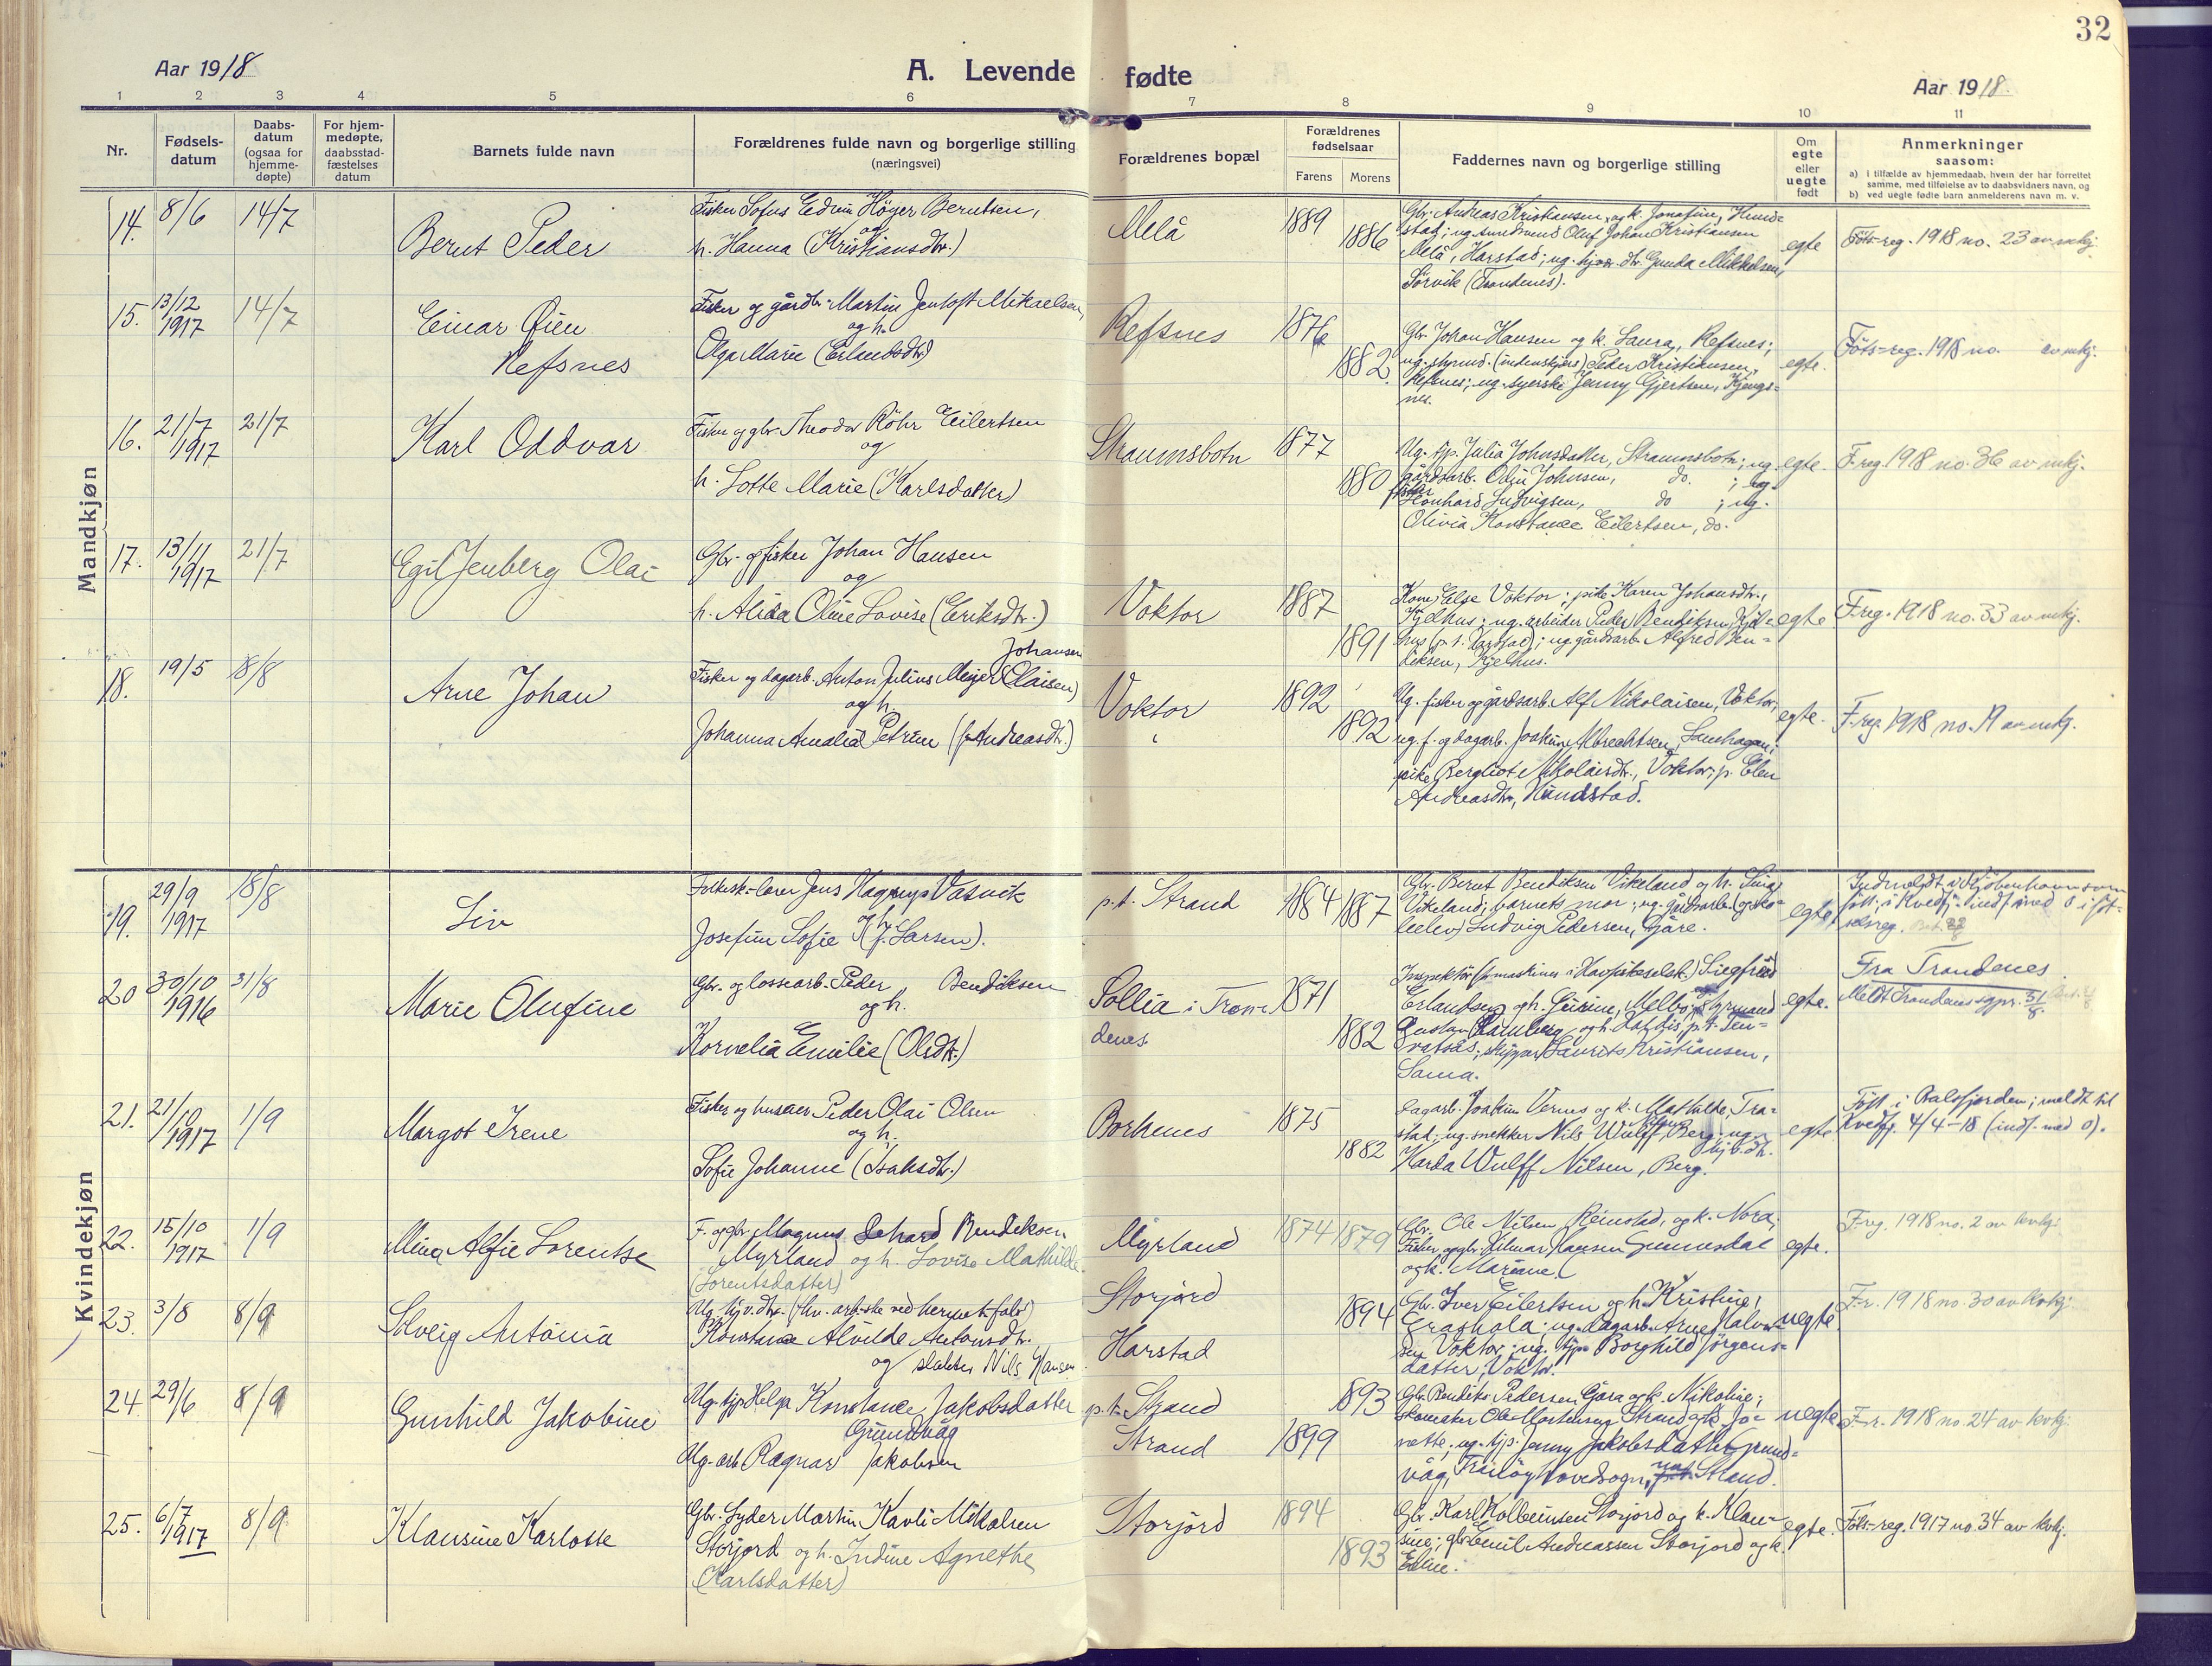 32
Aar 1918
A. Levende fødte
Aar 1918
1 2 3 4 5 6 7 8 9 10 11
Nr.
Fødselsdatum
Daabsdatum (ogsaa for hjemmedøpte)
For hjemmedøpte, daabsstadfæstelses datum
Barnets fulde navn
Forældrenes fulde navn og borgerlige stilling (næringsvei)
Forældrenes bopæl
Forældrenes fødselsaar
Farens Morens
Faddernes navn og borgerlige stilling
Om egte eller uegte født
Anmerkninger
saasom:
a) i tilfælde av hjemmedaab, hvem der har forrettet samme, med tilføielse av to daabsvidners navn, og
b) ved uegte fødte barn anmelderens navn m. v.
Mandkjøn
14. 8/6 14/7
Bernt Peder
Fisker Sofus Edvin Höyer Berntsen,
og
h. Hanna (Kristiansdtr.)
Melå
1889
1886
Gbr. Andreas Kristiansen og k. Jonafine, Hund-
stad; ug. Oluf Johan Kristiansen
Melå, Harstad; ug. Gunda Mikkelsen,
Sörvik (Trondenes).
egte
Föts-reg. 1918 no. 23 av mkj.
15. 13/12 1917 14/7
Einar Qien
Refsnes
Fisker og gårdbr. Martin Jentoft Mikaelsen,
og h.
Olga Marie (Erlandsdtr)
Refsnes
1876
1882
Gbr. Johan Hansen og k. Laura, Refsnes;
ug. styrmd. (indenskjærs) Peder Kristiansen,
Refsnes; ug. syerske Jenny Gjertsen, Kjengs-
nes.
egte.
Föts-reg. 1918 no. av mkj.
16. 21/7 1917 21/7
Karl Oddvar
Fisker og gbr. Theodor Röhr Eilertsen
og
h. Lotte Marie (Karlsdatter)
Straumsbotn
1877
1880
Ug. tjp. Julia Johnsdatter, Straumsbotn; ug.
gårdsarb. Odin Johnsen, do. ; ug.
fisker Leonhard Ludvigsen, do ; ug.
Olivia Konstance Eilertsen, do.
egte.
F-reg. 1918 no. 36 av mkj.
17. 13/11 1917 21/7
Egil Jenberg Olai
Gbr. og fisker Johan Hansen
og
h. Alida Oline Lovise (Eriksdtr.)
Voktor
1887
1891
Kone Else Voktor; pike Karen Johansdtr.,
Kjelhus; ug. arbeider Peder Bendiksen, Kjel-
hus (p. t. Harstad); ug. gårdsarb. Alfred Ben-
diksen, Kjelhus.
egte
F-reg. 1918 no. 33 av mkj.
18. 19/5 8/8
Arne Johan
Johansen
Fisker og dagarb. Anton Julius Meyer (Olaisen)
og h.
Johanna Amalia Petrine (f. Andreasdtr.)
Voktor
1892
1892
Ug. fisker og gårdsarb. Alf Nikolaisen, Voktor;
ug. f. og dagarb. Joakim Albrechtsen,
pike Bergliot Nikolaisdtr., Voktor; p. Elen
Andreasdtr., Hundstad.
egte.
F-reg. 1918 no. 19 av mkj.
Kvindekjøn
19. 29/9 1917 18/8
Liv
Folkesk-lærer Jens Hagerup Vasvik
og h.
Josefine Sofie (f. Larsen).
p.t. Strand
1884 1887
Gbr. Bernt Bendiksen Vikeland og h. Lina
Vikeland; barnets mor; ug. gårdsarb. (og sko-
leelev) Ludvig Pedersen, Gåre.
egte
Indmeldt i Kjöbenhavn som
født; i Kvedfj. indf. med 0 i föd-
selsreg.
20 30/10 1916 31/8
Marie Olufine
Gbr. og lossearb. Peder Bendiksen
og h.
Kornelia Emilie (Olsdtr.)
Sollia i Tron-
denes
1871
1882
Inspektör (for maskiner i Havfiskeselsk.) Siegfried
Erlandsen og h. Guirine, Melbo; styrmand
Gustav Ramberg og h. p.t. Ten-
vatsås; skipper Laurits Kristiansen,
Sama.
egte.
Fra Trondenes
Meldt Trondenes sgpr. 31/8.
21. 21/10 1917 1/9
Margot Irene
Fisker og huseier Peder Olai Olsen
og h.
Sofie Johanne (Isaksdtr.)
Borkenes
1875
1882
Dagarb. Joakim Vernes og k. Mathilde, Tra-
stad; ug. snekker Nils Wulff Nilsen, Berg; ug.
hjv. dtr.
Harda Wulff Nilsen, Berg.
egte
Född i Balsfjorden; meldt til
Kvedfj. 4/4-18 (indf. med 0).
22. 15/10 1917 1/9
Mina Alfie Lorentse
F. og gbr. Magnus Dehard Bendiksen
Myrland og h. Lovise Mathilde
(Lorentsdatter)
Myrland
1874 1879
Gbr. Ole Nilsen Reinstad, og k. Nora,
Fisker og gbr. Hilmar Hansen Gunnesdal
og k. Mariane.
egte.
F-reg. 1918 no. 2 av kvkj.
23. 3/8 8/9
Solveig Antonia
Ug. hjv. dtr. (fhv. arb-ske ved hermet.fabr)
Konstance Alvilde Antonsdtr.
og slakter Nils Hansen
Storjord
Harstad
1894
Gbr. Iver Eilertsen og h. Kristine,
Grashola; ug. dagarb. Arne Halvor-
sen Voktor; ug. tjp. Borghild Jörgens-
datter, Voktor.
uegte
F-r. 1918 no. 30 av kvkj.
24. 29/6 8/9
Gunhild Jakobine
Ug. tjp Helga Konstance Jakobsdatter
Grundvåg
Ug. arb. Ragnar Jakobsen
p.t. Strand
Strand
1893
1899
Gbr. Bendiks Pedersen Gåra og k. Nikoline;
skomaker Ole Mortensen Strand og k. Jo-
nette; ug. tjp. Jenny Jakobsdatter Grund-
våg, Tranöy hovedsogn, p.t. Strand.
uegte
F-r. 1918 no. 24 av kvkj.
25. 6/7 1917 8/9
Klausine Karlotte
Gbr. Lyder Martin Kavli Mikalsen
Storjord og h. Indine Agnethe
(Karlsdatter)
Storjord
1894
1893
Gbr. Karl Kolbeinsen Storjord og k. Klau-
sine; gbr. Emil Andreassen Storjord og k.
Eline.
egte.
Föts-reg. 1917 no. 34 av kvkj.